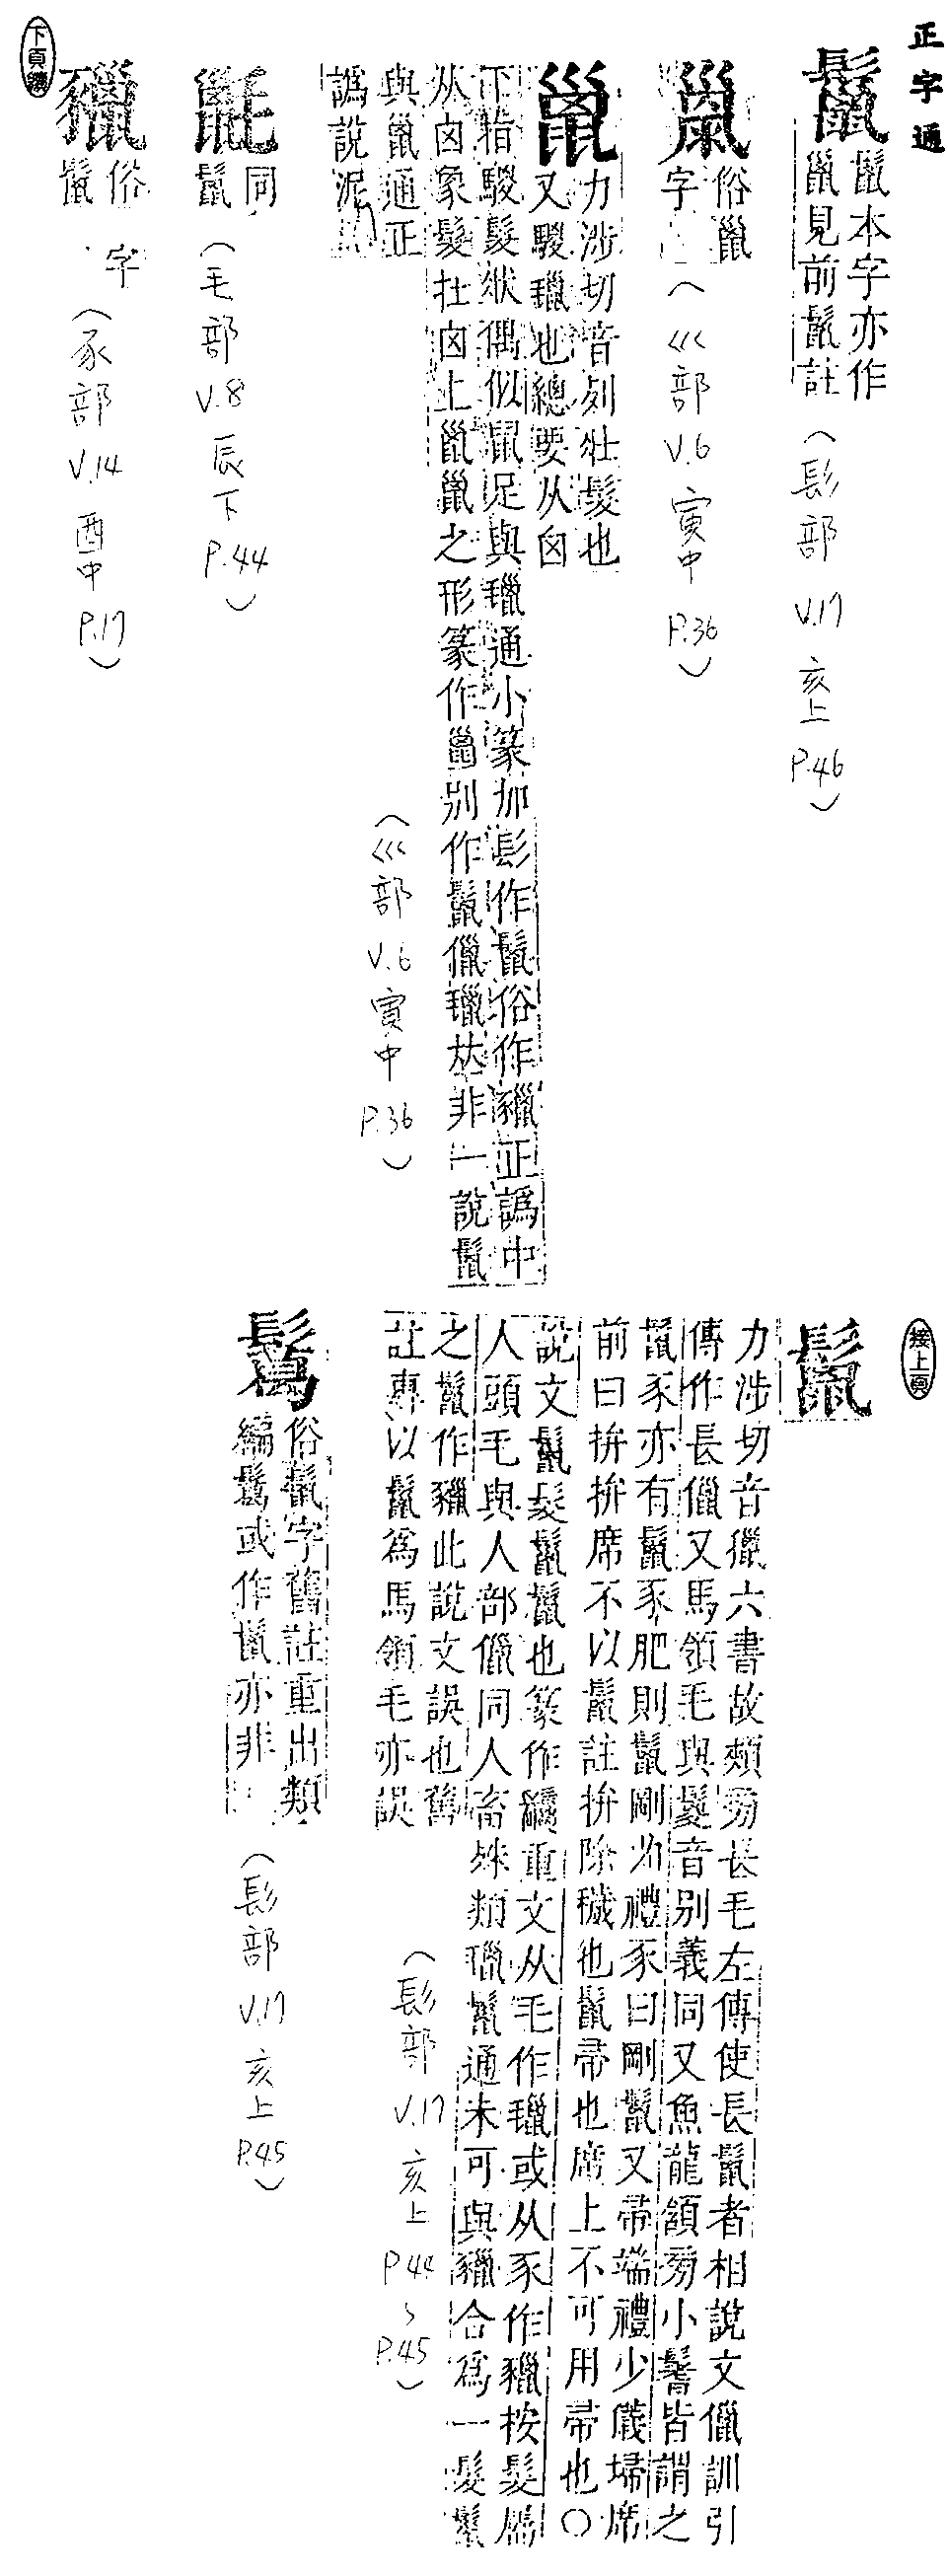 正字通
鬣
鬣本字亦作
巤見前鬣註
(髟部 V.17 亥上 P.46)
俗巤
字
(巛部 V.6 寅中 P.36)
巤
力涉切音列壯髮也
又騣氊也總要从囟
下指騣髮狀偶似鼠足與
通小篆加髟作鬣俗作
正譌中
从囟象髮在囟上巤巤之形篆作巤別作鬣儠
𠀤非一說鬣
與巤通正
譌說泥
(巛部 V.6 寅中 P.36)
同
鬣
(毛部 V.8 辰下 P.44)
俗
鬣
字
(豕部 V.14 酉中 P.17)
下頁續
接上頁
鬣
力涉切音獵六書故頰旁長毛左傳使長鬣者相說文儠訓引
傳作長儠又馬領毛與鬉音別義同又魚龍頷旁小鬐皆謂之
鬣豕亦有鬣豕肥則鬣剛故禮豕曰剛鬣又帚端禮少儀埽席
前曰拚拚席不以鬣註拚除穢也鬣帚也席上不可用帚也○
說文鬣髮鬣鬣也篆作
重文从毛作
或从豕作
按髮屬
人頭毛與人部儠同人畜殊類
鬣通未可與
合為一髮鬣
之鬣作
此說文誤也舊
註專以鬣為馬領毛亦誤
(髟部 V.17 亥上 P.44~P.45)
俗鬣字舊註重出類
編
或作
亦非
(髟部 V.17 亥上 P.45)